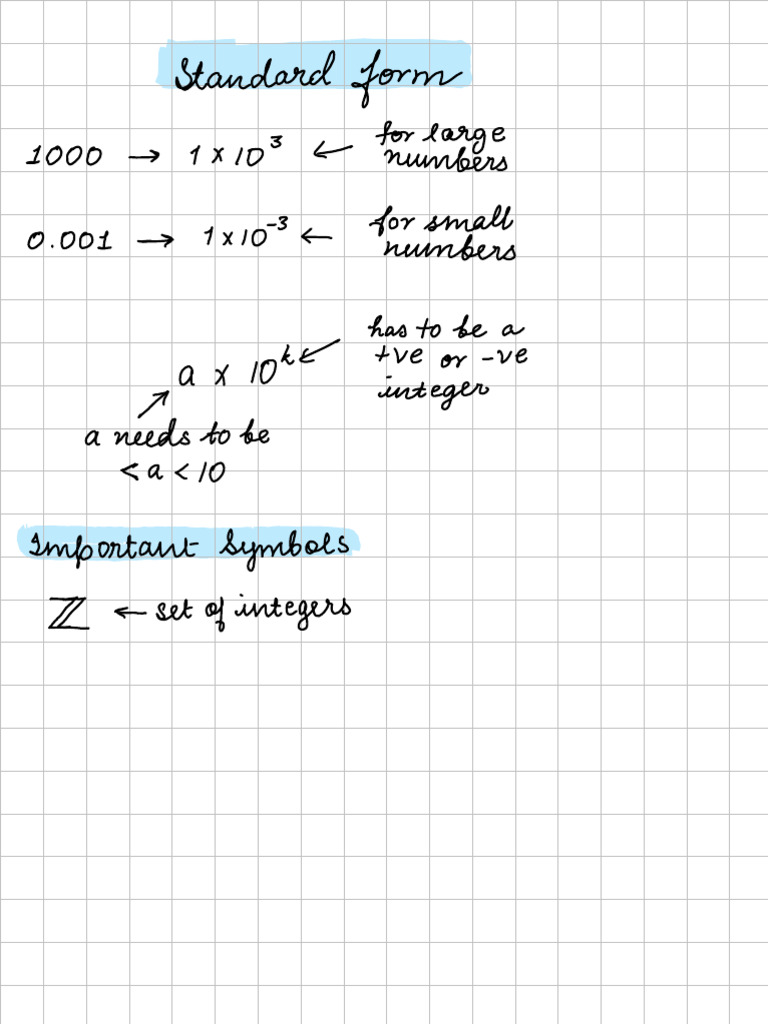 Standard form
1000 → 1 x 10³ ← for large
numbers
0.001 → 1 x 10⁻³ ← for small
numbers
has to be a
+ve or -ve
integer
a x 10ᵏ ←
a needs to be
< a < 10
Important Symbols
ℤ ← set of integers